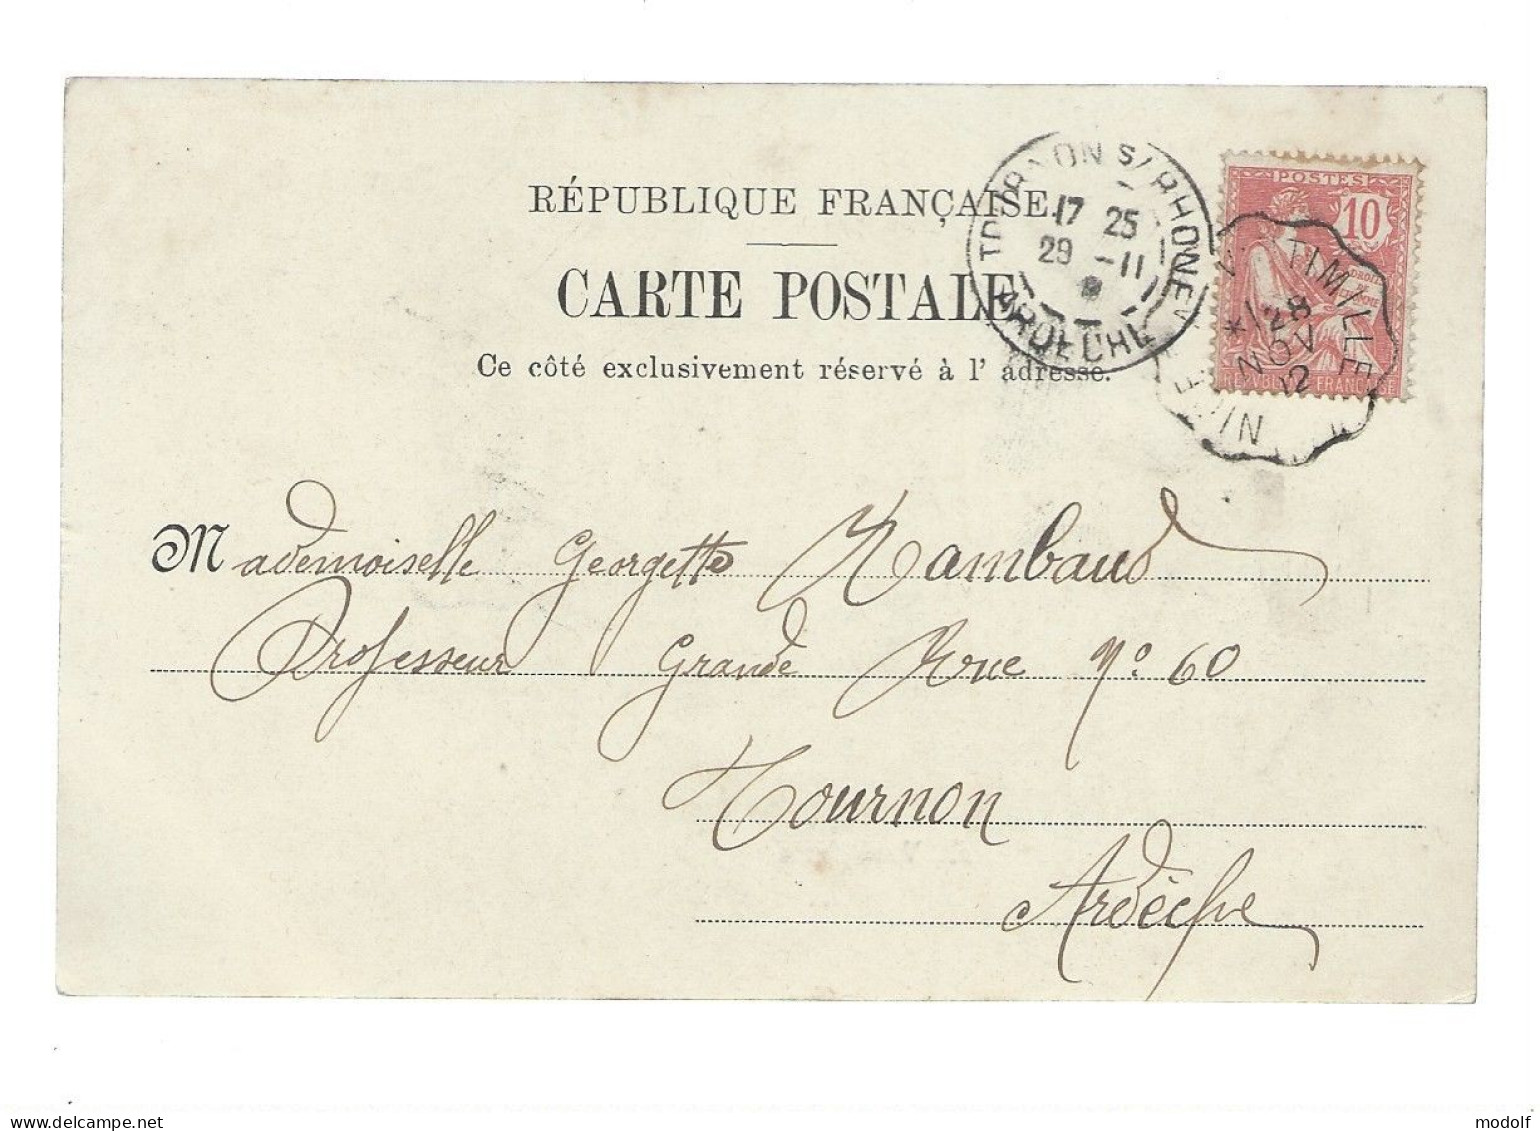 RÉPUBLIQUE FRANÇAISE
CARTE POSTALE
Ce côté exclusivement réservé à l'adresse.
TOURNON S/ RHONE
17 25
29 - 11
ARDECHE
POSTES
10
REPUBLIQUE FRANÇAISE
VINTIMILLE
*1 28
NOV
NICE
Mademoiselle Georgette Rambaud
Professeur Grande Rue No 60
Tournon
Ardèche
www.delcampe.net
modolf